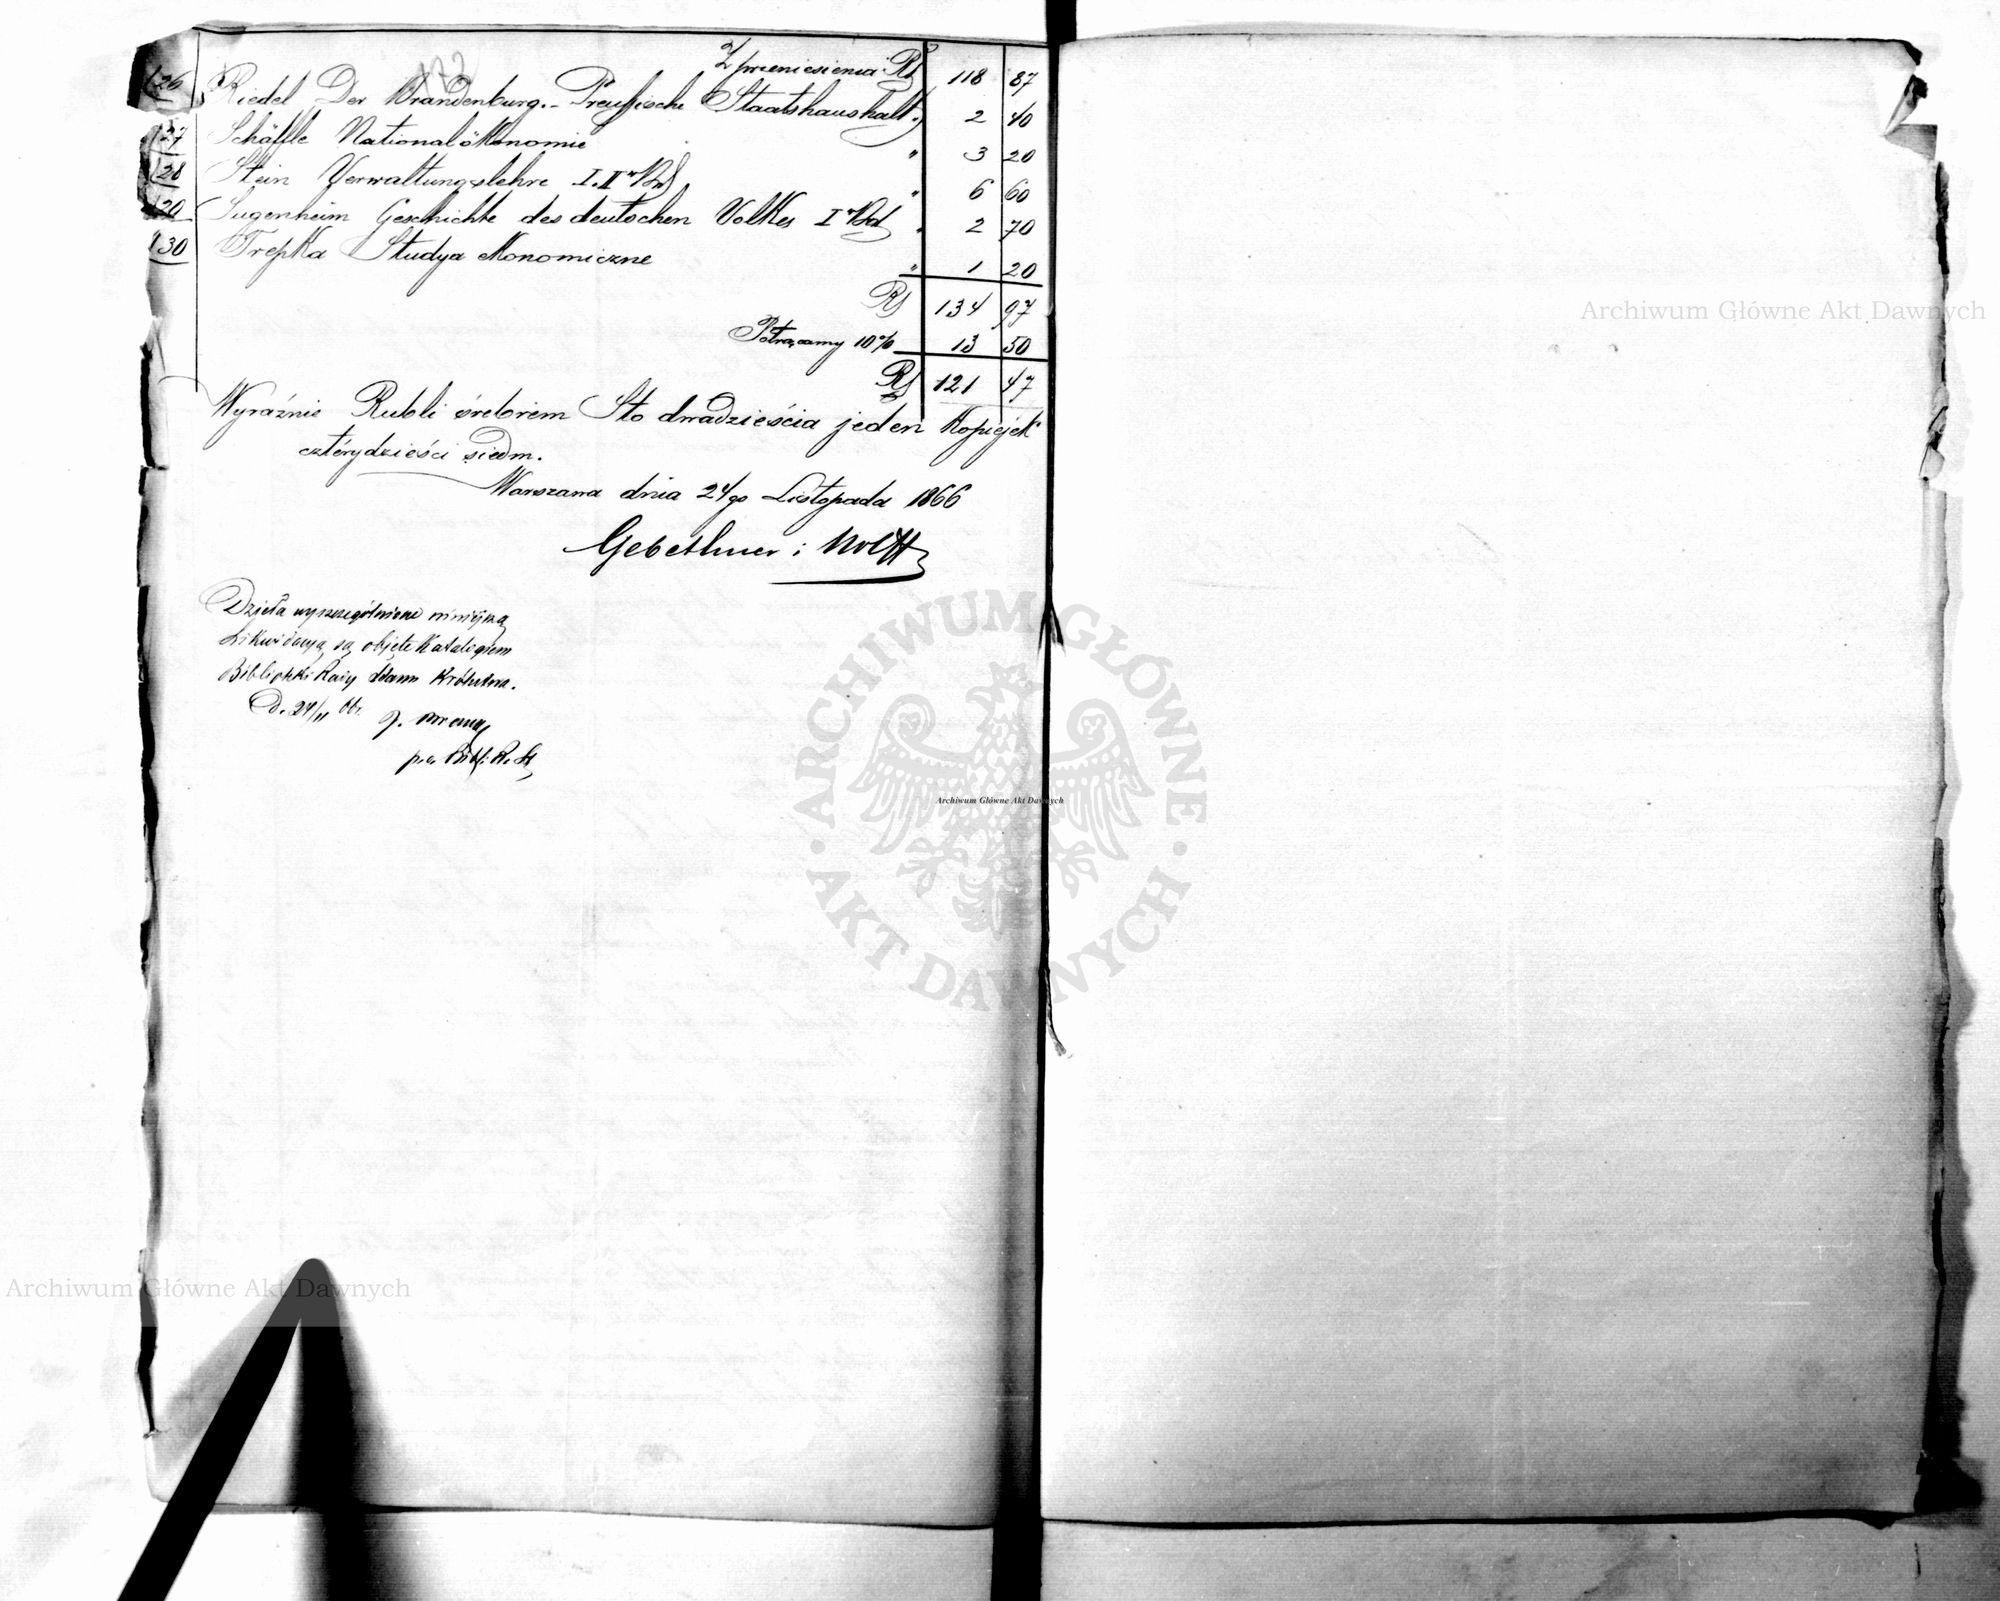 Z przeniesienia Rs 118 87
126 Riedel Der Brandenburg.- Preussische Staatshaushalt „ 2 40
127 Schäffle Nationalökonomie „ 3 20
128 Stein Verwaltungslehre I. II Bd „ 6 60
129 Sugenheim Geschichte des deutschen Volkes I Bd „ 2 70
130 Trepka Studya ekonomiczne „ 1 20
Rs 134 97
Potrącamy 10% 13 50
Rs 121 47
Wyraźnie Rubli srebrem Sto dwadzieścia jeden Kopiejek
cztérydzieści siedm.
Warszawa dnia 24go Listopada 1866
Gebethner i Wolff
Dzieła wyszczególnione niniejszą
Likwidacyą są objęte Katalogiem
Biblioteki Rady Stanu Królestwa.
D. 24/11
Bibl. R. St
Archiwum Główne Akt Dawnych
ARCHIWUM GŁÓWNE
AKT DAWNYCH
Archiwum Główne Akt Dawnych
Archiwum Główne Akt Dawnych